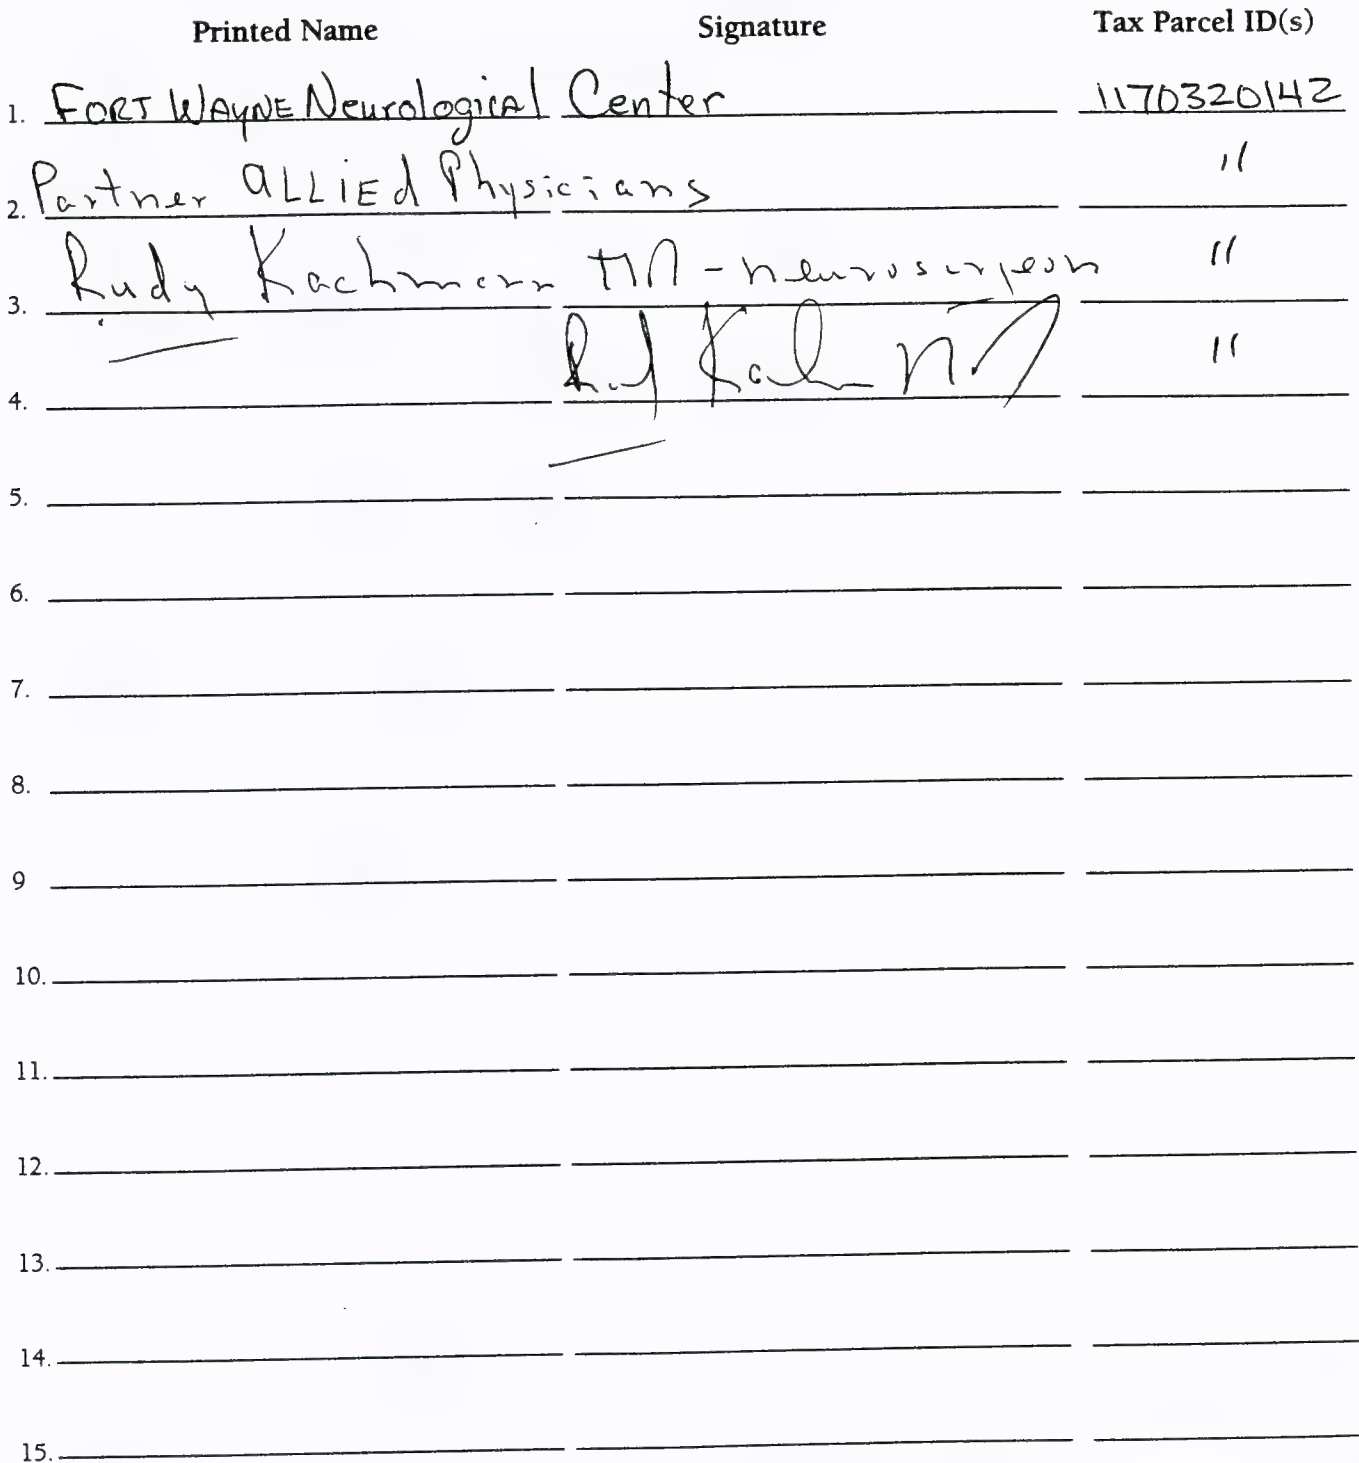 Printed Name Signature Tax Parcel ID(s)
1. FORT WAYNE Neurological Center 1170320142
2. Partner ALLIED Physicians "
3. Rudy Kachmann MD - neurosurgeon "
4. "
5.
6.
7.
8.
9
10.
11.
12.
13.
14.
15.